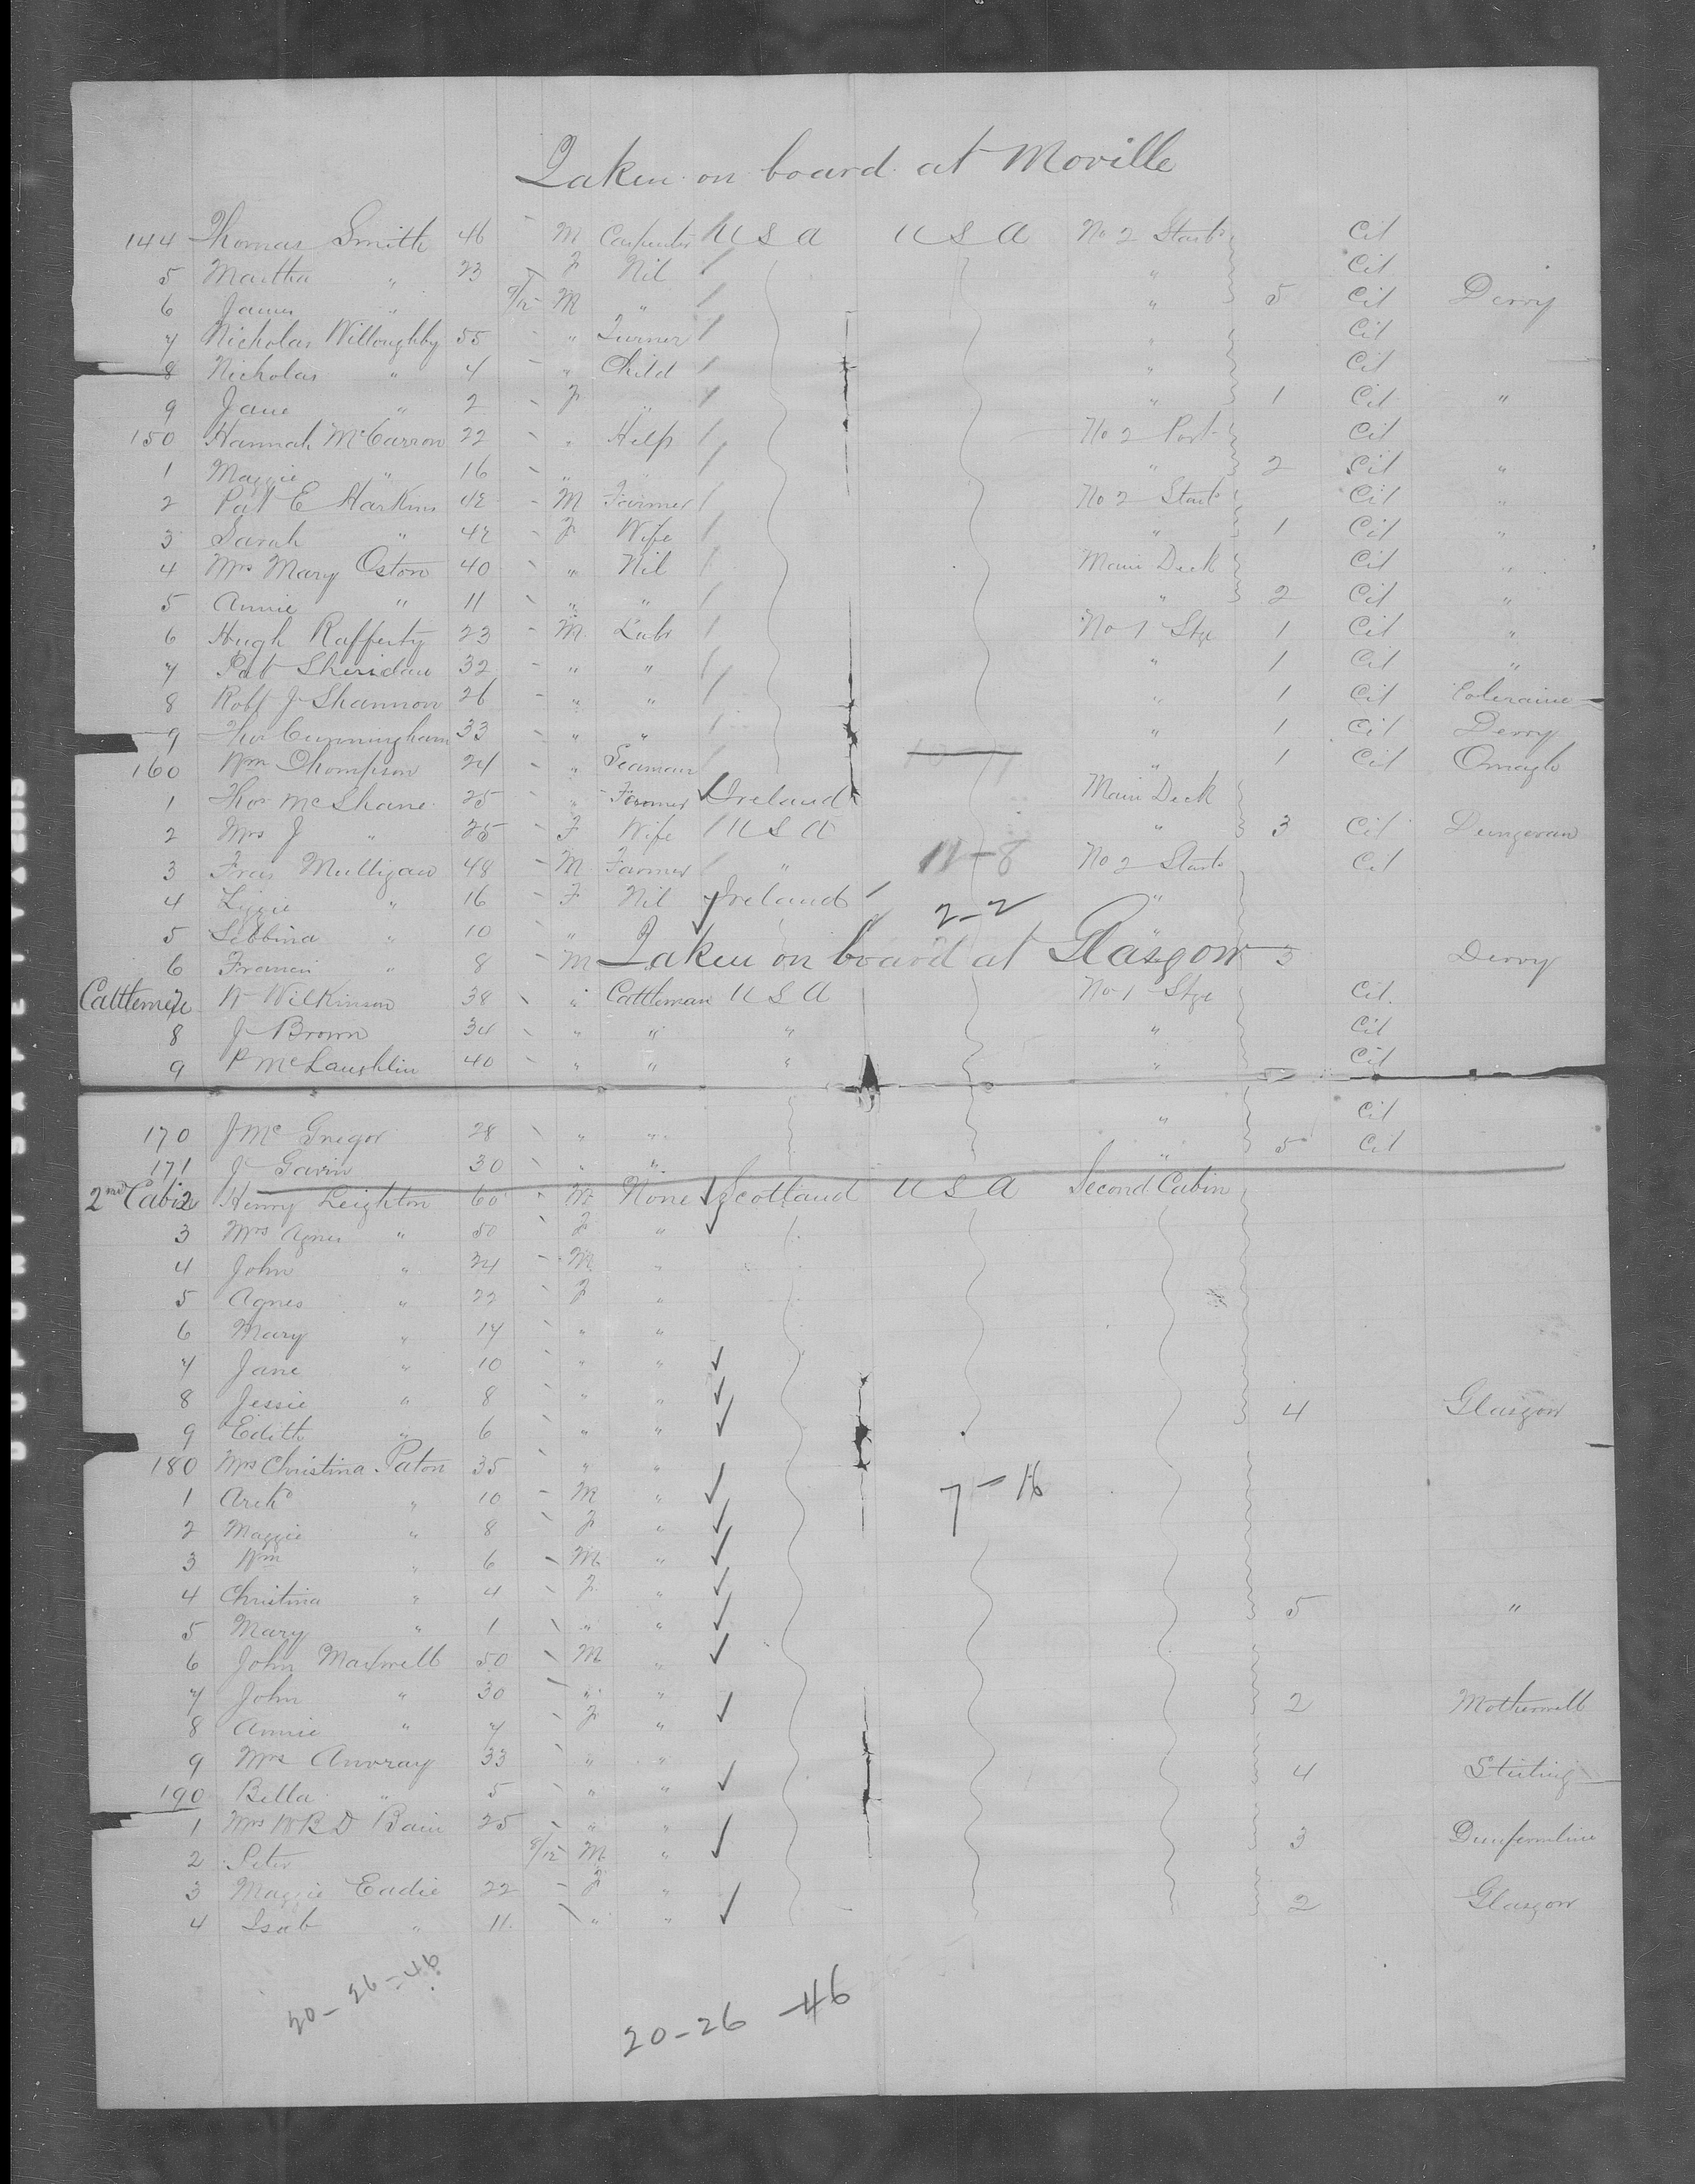 Taken on board at Moville
144 Thomas Smith 46 M Carpenter U S A U S A No 2 Starb Cit
5 Martha " 23 F Nil " Cit
6 James " 9/12 M " " 5 Cit Derry
7 Nicholas Willoughby 55 " Turner " Cit
8 Nicholas " 4 " Child " Cit
9 Jane " 2 F " " 1 Cit "
150 Hannah McCarron 22 " Help No 2 Port Cit
1 Maggie " 16 " " " 2 Cit "
2 Pat E Harkins 42 M Farmer No 2 Starb Cit "
3 Sarah " 42 F Wife " 1 Cit "
4 Mrs Mary Oston 40 " Nil Main Deck Cit "
5 Annie " 11 " " " 2 Cit "
6 Hugh Rafferty 23 M Labr No 1 Stge 1 Cit "
7 Pat Sheridan 32 " " " 1 Cit "
8 Robt J Shannon 26 " " " 1 Cit Coleraine
9 Thos Cunningham 33 " " " 1 Cit Derry
160 Wm Thompson 24 " Seaman " 1 Cit Omagh
1 Thos McShane 25 " Farmer Ireland Main Deck
2 Mrs J " 25 F Wife U S A " 3 Cit Dungevan
3 Fras Mulligan 48 M Farmer " 11-8 No 2 Starb Cit
4 Lizzie " 16 F Nil Ireland "
2-2
5 Sebbina " 10 "
6 Francis " 8 M 3 Derry
Taken on board at Glasgow
Cattlemen 7 W Wilkinson 38 " Cattleman U S A No 1 Stge Cit
8 J Brown 34 " " " " Cit
9 P McLaughlin 40 " " " " Cit
170 J McGregor 28 " " " Cit
171 J Gavin 30 " " " 5 Cit
2nd Cabin 2 Henry Leighton 60 M None Scotland U S A Second Cabin
3 Mrs Agnes " 50 F "
4 John " 24 M "
5 Agnes " 22 F "
6 Mary " 17 " "
7 Jane " 10 " "
8 Jessie " 8 " " 4 Glasgow
9 Edith " 6 " "
180 Mrs Christina Paton 35 " "
1 Archd " 10 M " 7-16
2 Maggie " 8 F "
3 Wm " 6 M "
4 Christina " 4 F " 5 "
5 Mary " 1 " "
6 John Maxwell 50 M "
7 John " 30 " " 2 Motherwell
8 Annie " 7 F "
9 Mrs Anvray 33 " " 4 Stirling
190 Bella " 5 " "
1 Mrs W R D Bain 25 " " 3 Dunfermline
2 Peter 8/12 M "
3 Maggie Eadie 22 F " 2 Glasgow
4 Isab " 11 " "
20-26-46
20-26-46